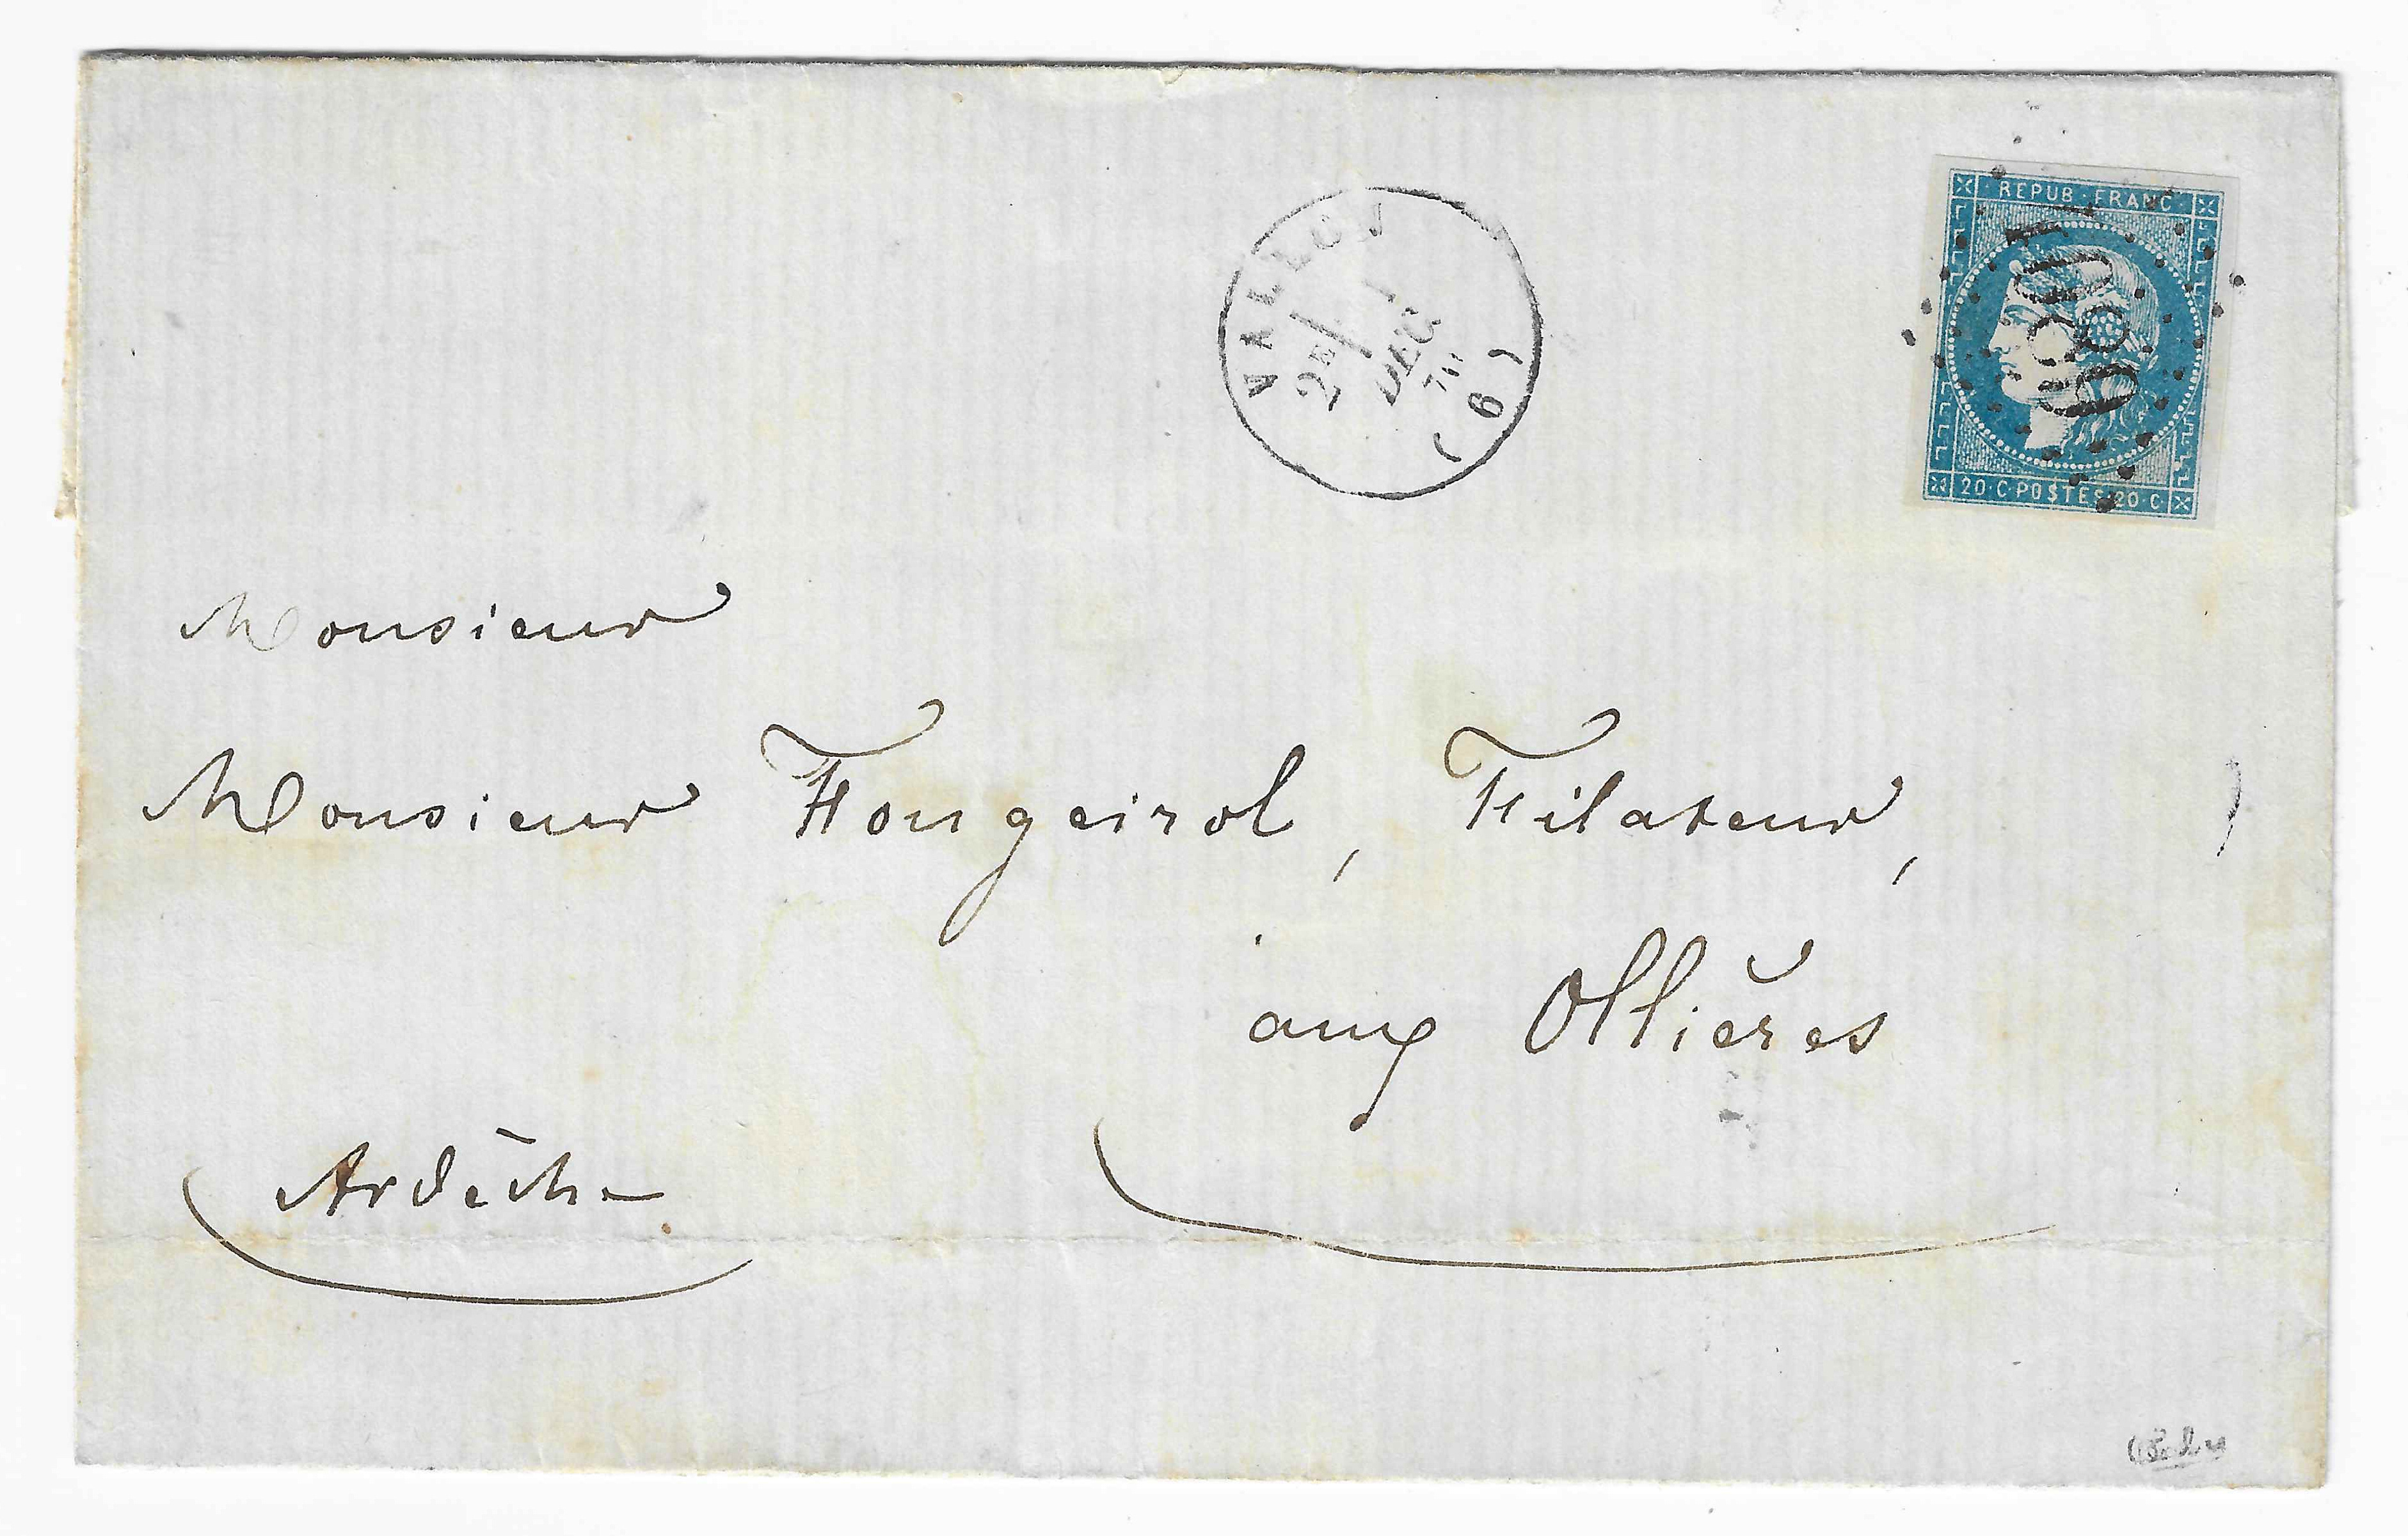 VALLON
2E
1
DEC.
70
(6)
REPUB·FRANC
20·C·POSTES·20·C
Monsieur
Monsieur Fougeirol, Filateur,
aux Ollières
Ardèche